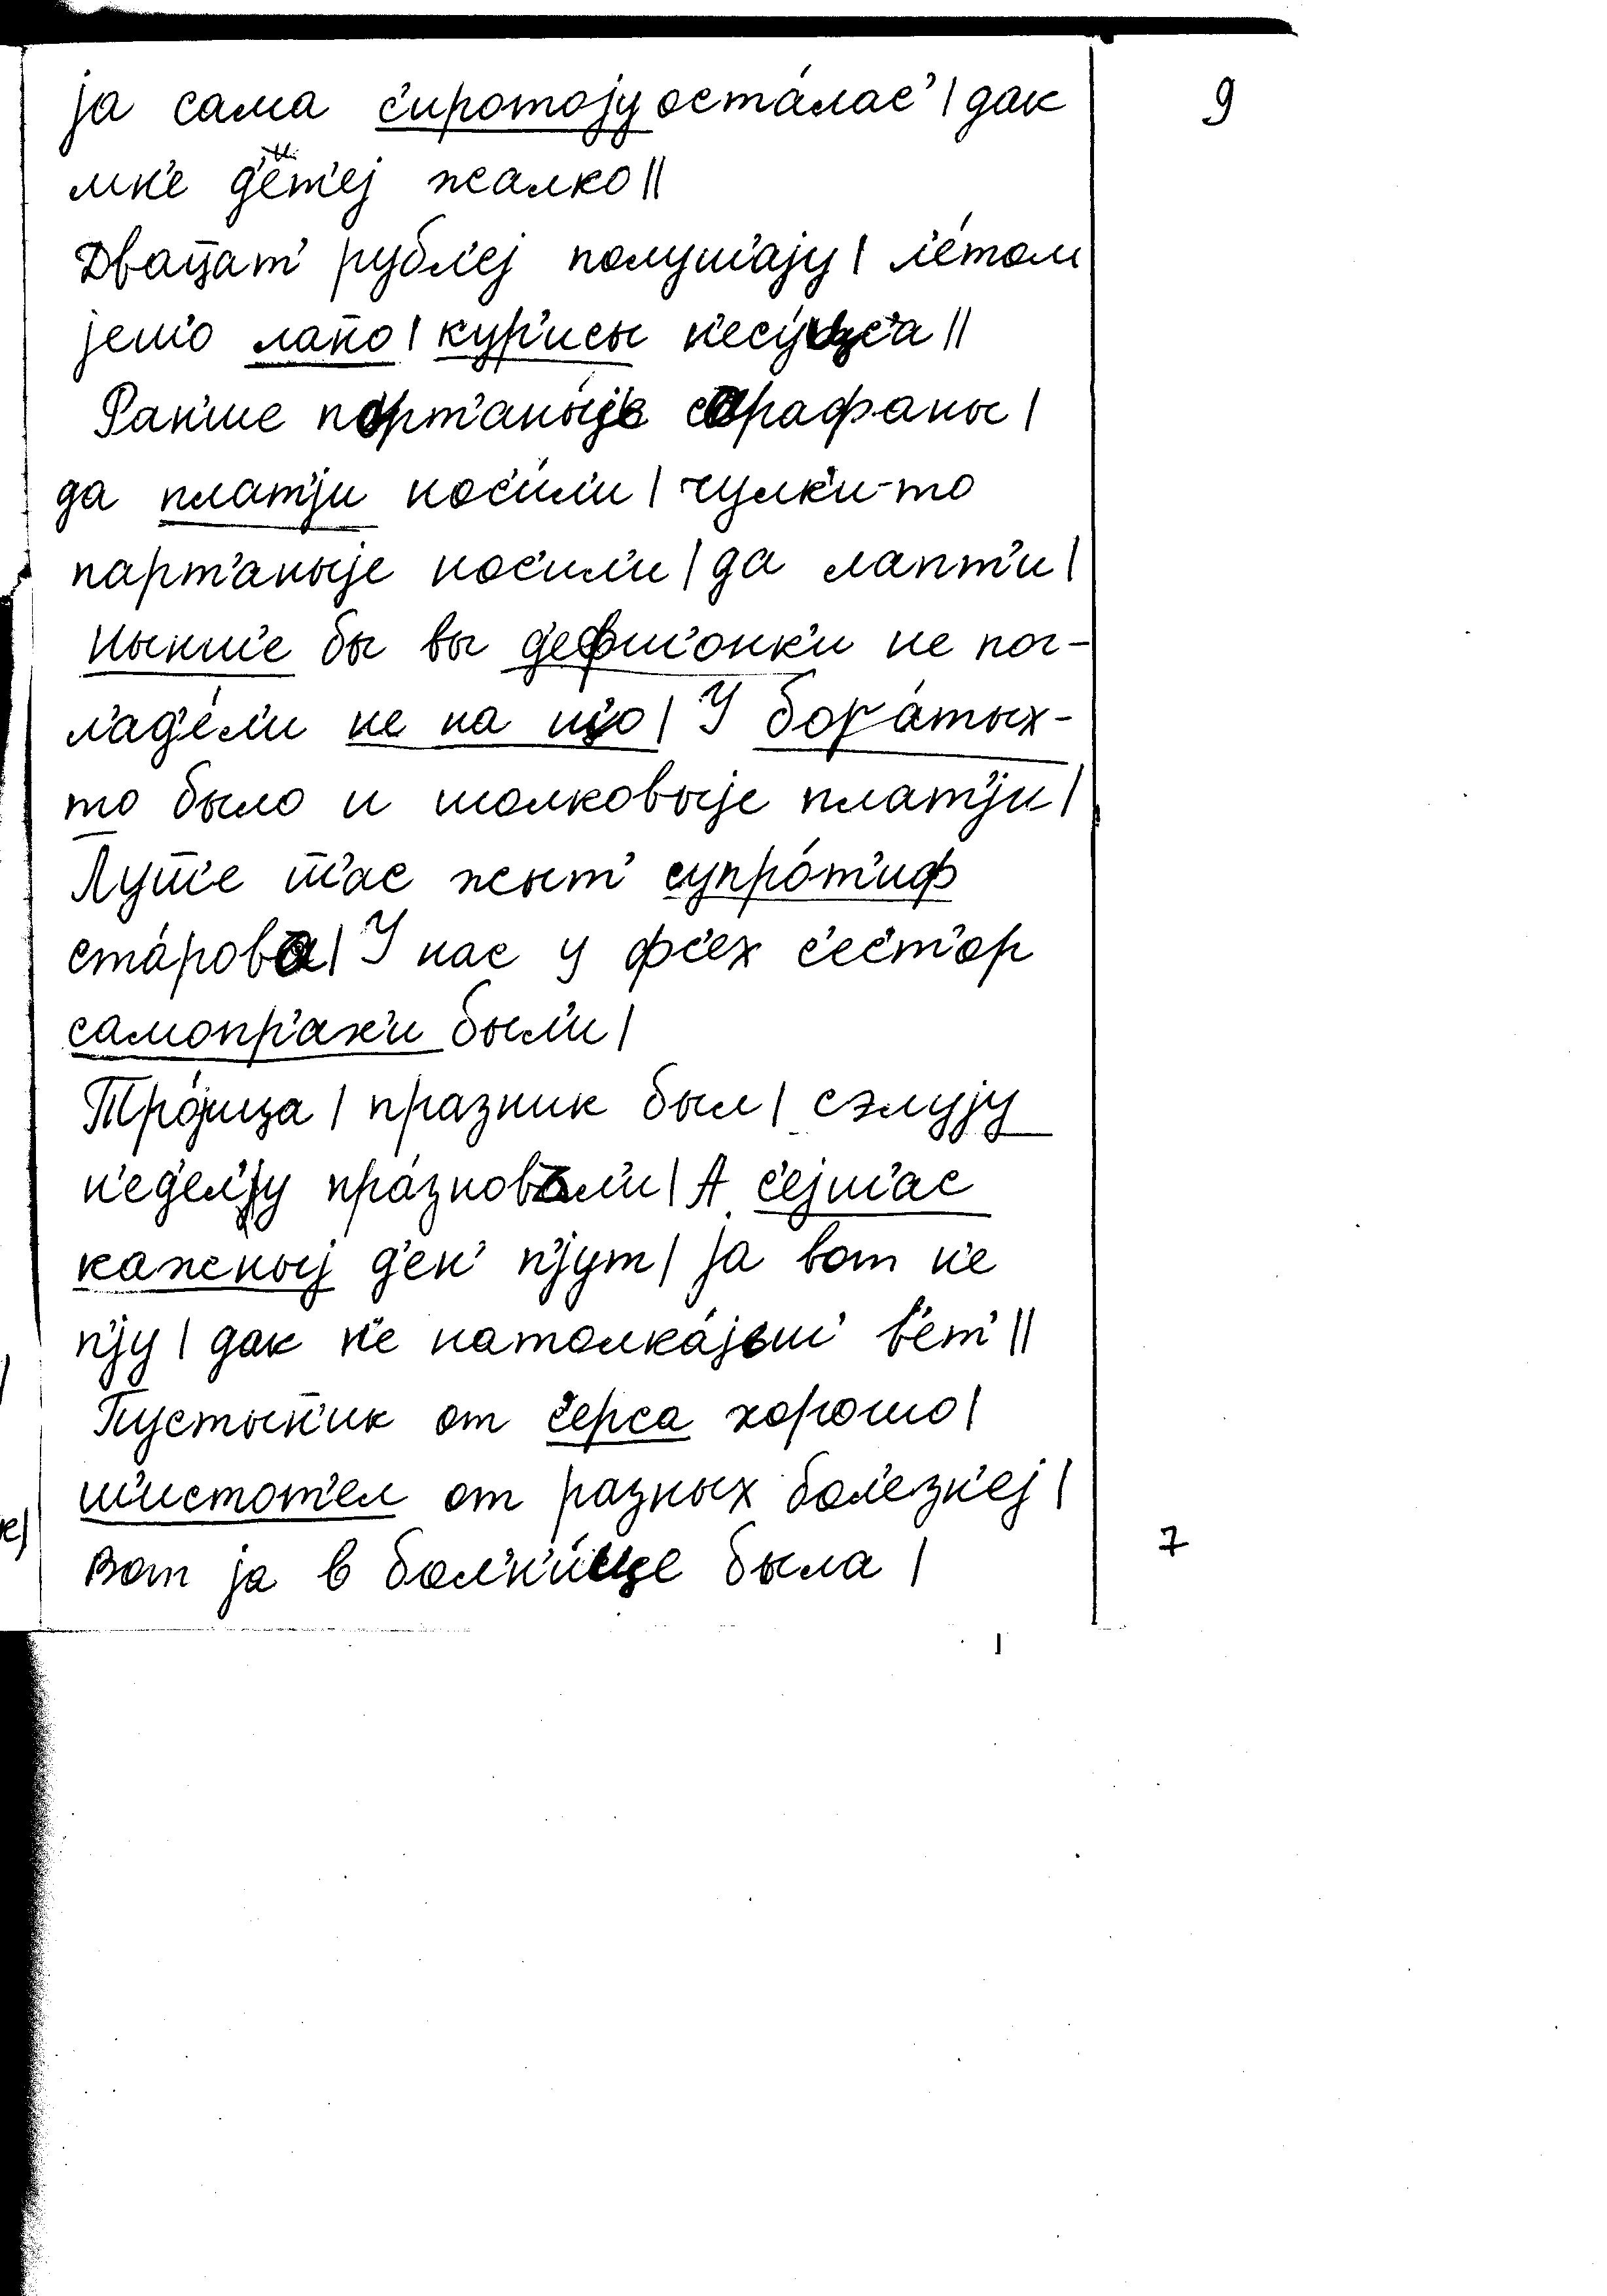 jа сама с'иротоjу оста́лас' | дак 9
мн'е д'ет'еj жалко ||
Двац̄ат' рубл'еj полуш'аjу | л'е́том
jеш'о лап̄о | кур'исы н'есу́цс'а ||
Ран'ше порт'аны́jе сарафаны |
да плат'jи нос'и́ли | чулк'и-то
парт'аныjе нос'ил'и | да лапт'и |
Нынш'е бы вы д'ефш'онк'и не пог-
л'ад'е́ли не на що | У бога́тых-
то было и шолковыjе плат'jи |
Лут̄ш'е ш'ас жыт' супро́т'иф
ста́рова | У нас у фс'ех с'ес'т'ор
самопр'ах'и был'и |
Тро́jица | празник был | сэлуjу
н'ед'ел'jу пра́зновал'и | А с'еjш'ас
кажныj д'ен' п'jут | jа вот н'е
п'jу | дак н'е натолка́jеш' в'ет' ||
Пустын̄'ик от с'ерса хорошо |
ш'истот'ел от разных бол'езн'еj |
Вот jа в бол'н'и́це была | 7